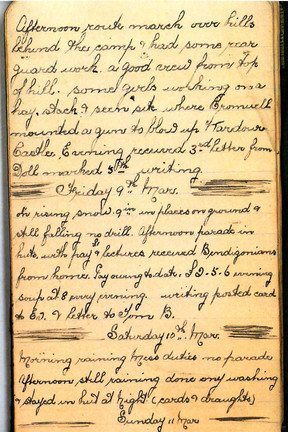 Afternoon route march over hills
behind the camp & had some rear
guard work. a good view from top
of hill. some girls working on a
hay stack & seen site where Cromwell
mounted a gun to blow up Wardour
Castle. Evening received 3rd letter from
Doll marked 5th writing.
Friday 9th Mar.
On rising snow 9in in places on ground &
still falling no drill. Afternoon parade in
huts with pay & lectures received Bendigonians
from home. Pay owing to date. £2-5-6 evening
soup at 8 every evening. writing posted card
to & letter to Tom B.
Saturday 10th Mar.
Morning raining Mess duties no parade
Afternoon still raining done my washing
& stayed in hut at night (cards & draughts)
Sunday 11 Mar